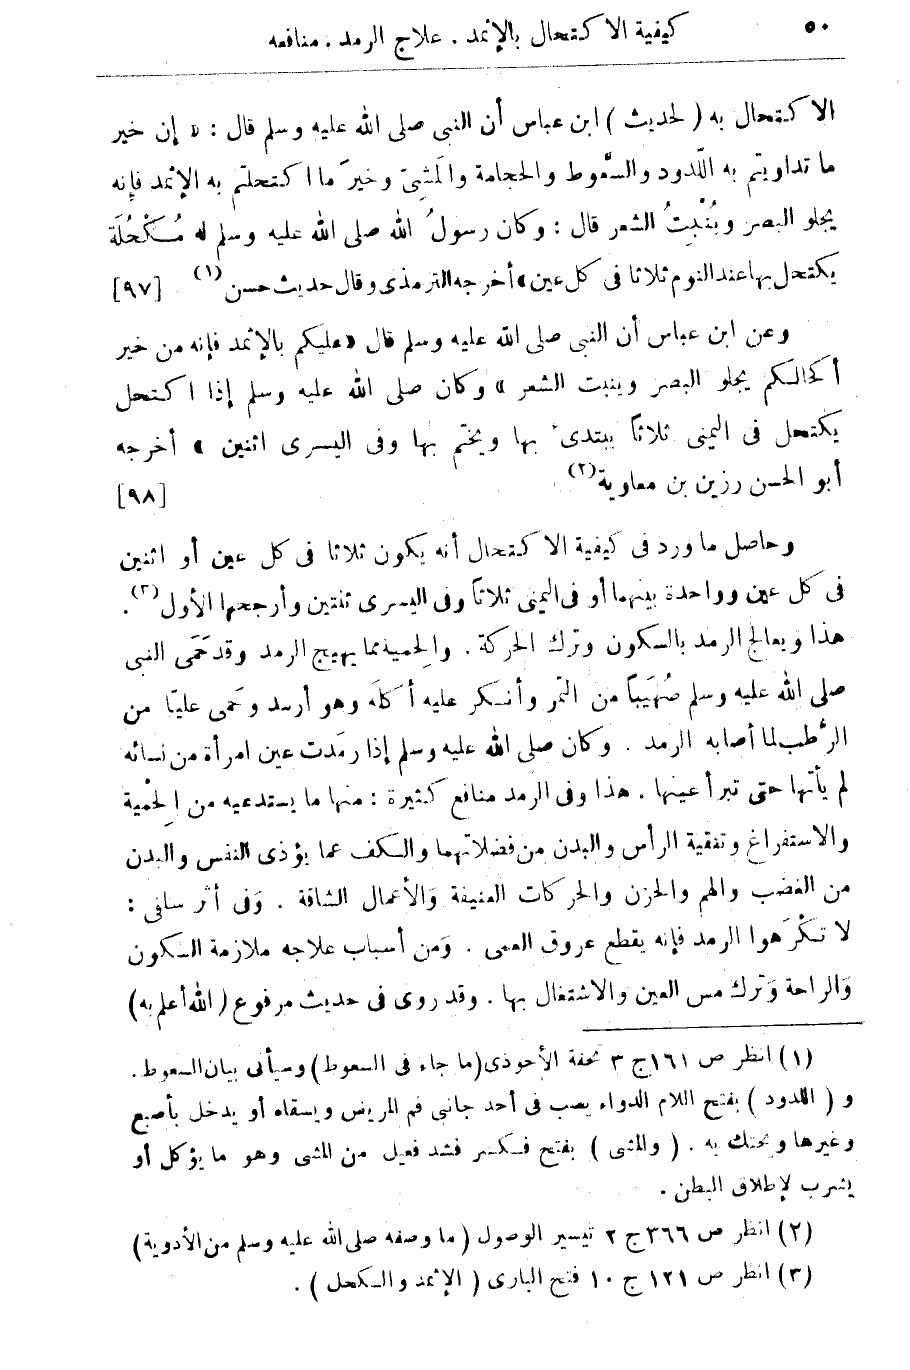 ٥٠ كيفية الاكتحال بالإثمد . علاج الرمد . منافعه
الاكتحال به ( لحديث ) ابن عباس أن النبى صلى الله عليه وسلم قال : « إن خير
ما تداويتم به اللَّدود والسَّعوط والحجامة والمَشِىّ وخيرَ ما اكتحلتم به الإثمد فإنه
يجلو البصر ويُنْبِتُ الشعر قال : وكان رسولُ الله صلى الله عليه وسلم له مُكْحُلَة
يكتحل بها عند النوم ثلاثا فى كل عين » أخرجه الترمذى وقال حديث حسن (١) [٩٧]
وعن ابن عباس أن النبى صلى الله عليه وسلم قال « عليكم بالإثمد فإنه من خير
أكحالكم يجلو البصر وينبت الشعر » وكان صلى الله عليه وسلم إذا اكتحل
يكتحل فى اليمنى ثلاثاً يبتدىء بها ويختم بها وفى اليسرى اثنين » أخرجه
أبو الحسن رزين بن معاوية (٢) . [٩٨]
وحاصل ما ورد فى كيفية الاكتحال أنه يكون ثلاثا فى كل عين أو اثنين
فى كل عين وواحدة بينهما أو فى اليمنى ثلاثاً وفى اليسرى ثنتين وأرجحها الأول (٣) .
هذا ويعالج الرمد بالسكون وترك الحركة . والحِمية مما يهيج الرمد وقد حَمَى النبى
صلى الله عليه وسلم صُهَيباً من التمر وأنكر عليه أكلَه وهو أرمد وحمى علياً من
الرُّطب لما أصابه الرمد . وكان صلى الله عليه وسلم إذا رمَدت عين امرأة من نسائه
لم يأتها حتى تبرأ عينها . هذا وفى الرمد منافع كثيرة : منها ما يستدعيه من الِحْمية
والاستفراغ وتنقية الرأس والبدن من فضلاتهما والكف عما يؤذى النفس والبدن
من الغضب والهم والحزن والحركات العنيفة وَالأعمال الشاقة . وَفى أثر سلفى :
لا تكْرَهوا الرمد فإنه يقطع عروق العمى . وَمن أسباب علاجه ملازمة السكون
وَالراحة وَترك مس العين والاشتغال بها . وقد روى فى حديث مرفوع ( الله أعلم به )
(١) انظر ص ١٦١ ج ٣ تحفة الأحوذى ( ما جاء فى السعوط ) وسيأتى بيان السعوط .
و ( اللدود ) بفتح اللام الدواء يصب فى أحد جانبى فم المريض ويسقاه أو يدخل بأصبع
وغيرها ويحنك به . ( والمشى ) بفتح فكسر فشد فعيل من المشى وهو ما يؤكل أو
يشرب لإطلاق البطن .
(٢) انظر ص ٣٦٦ ج ٢ تيسير الوصول ( ما وصفه صلى الله عليه وسلم من الأدوية )
(٣) انظر ص ١٢١ ج ١٠ فتح البارى ( الإثمد والكحل ) .